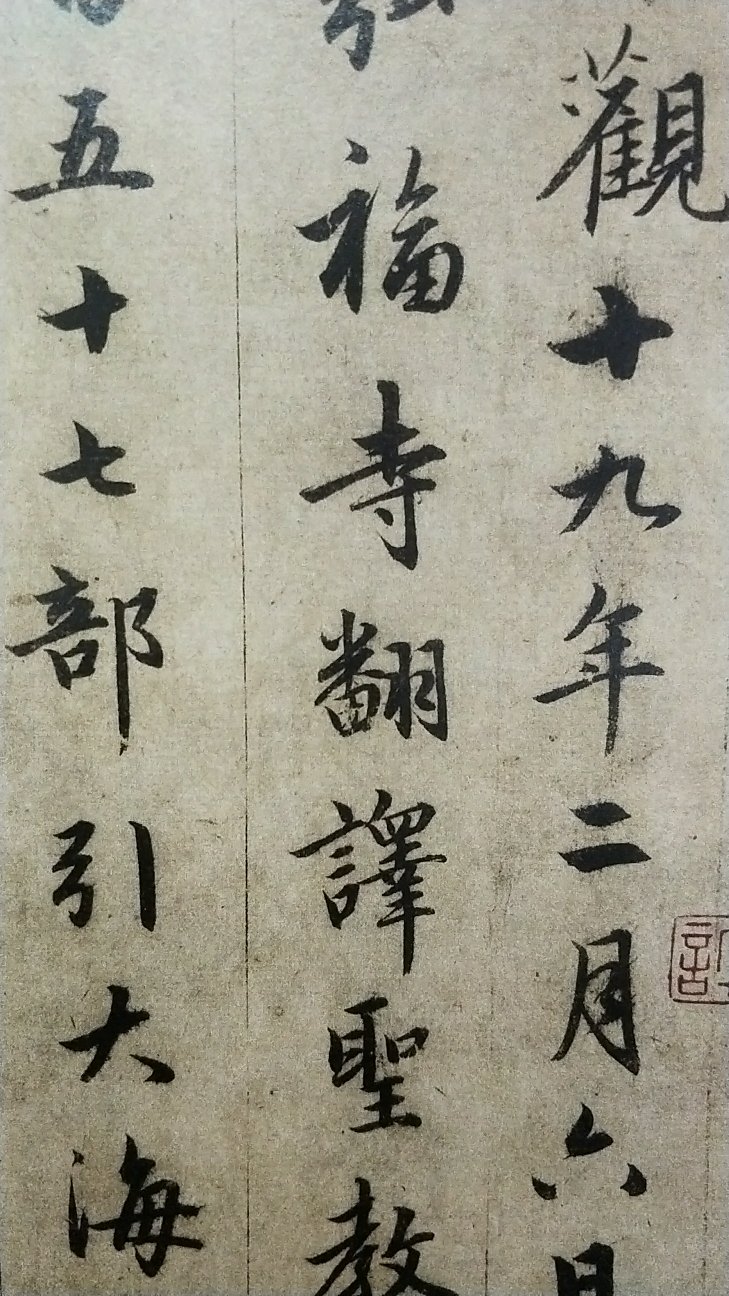 觀十九年二月六日
弘福寺翻譯聖教
五十七部引大海